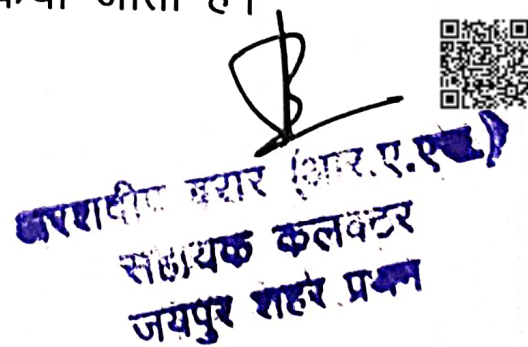 किया जाता है।
अरशदीप बरार (आर.ए.एस.)
सहायक कलक्टर
जयपुर शहर प्रथम